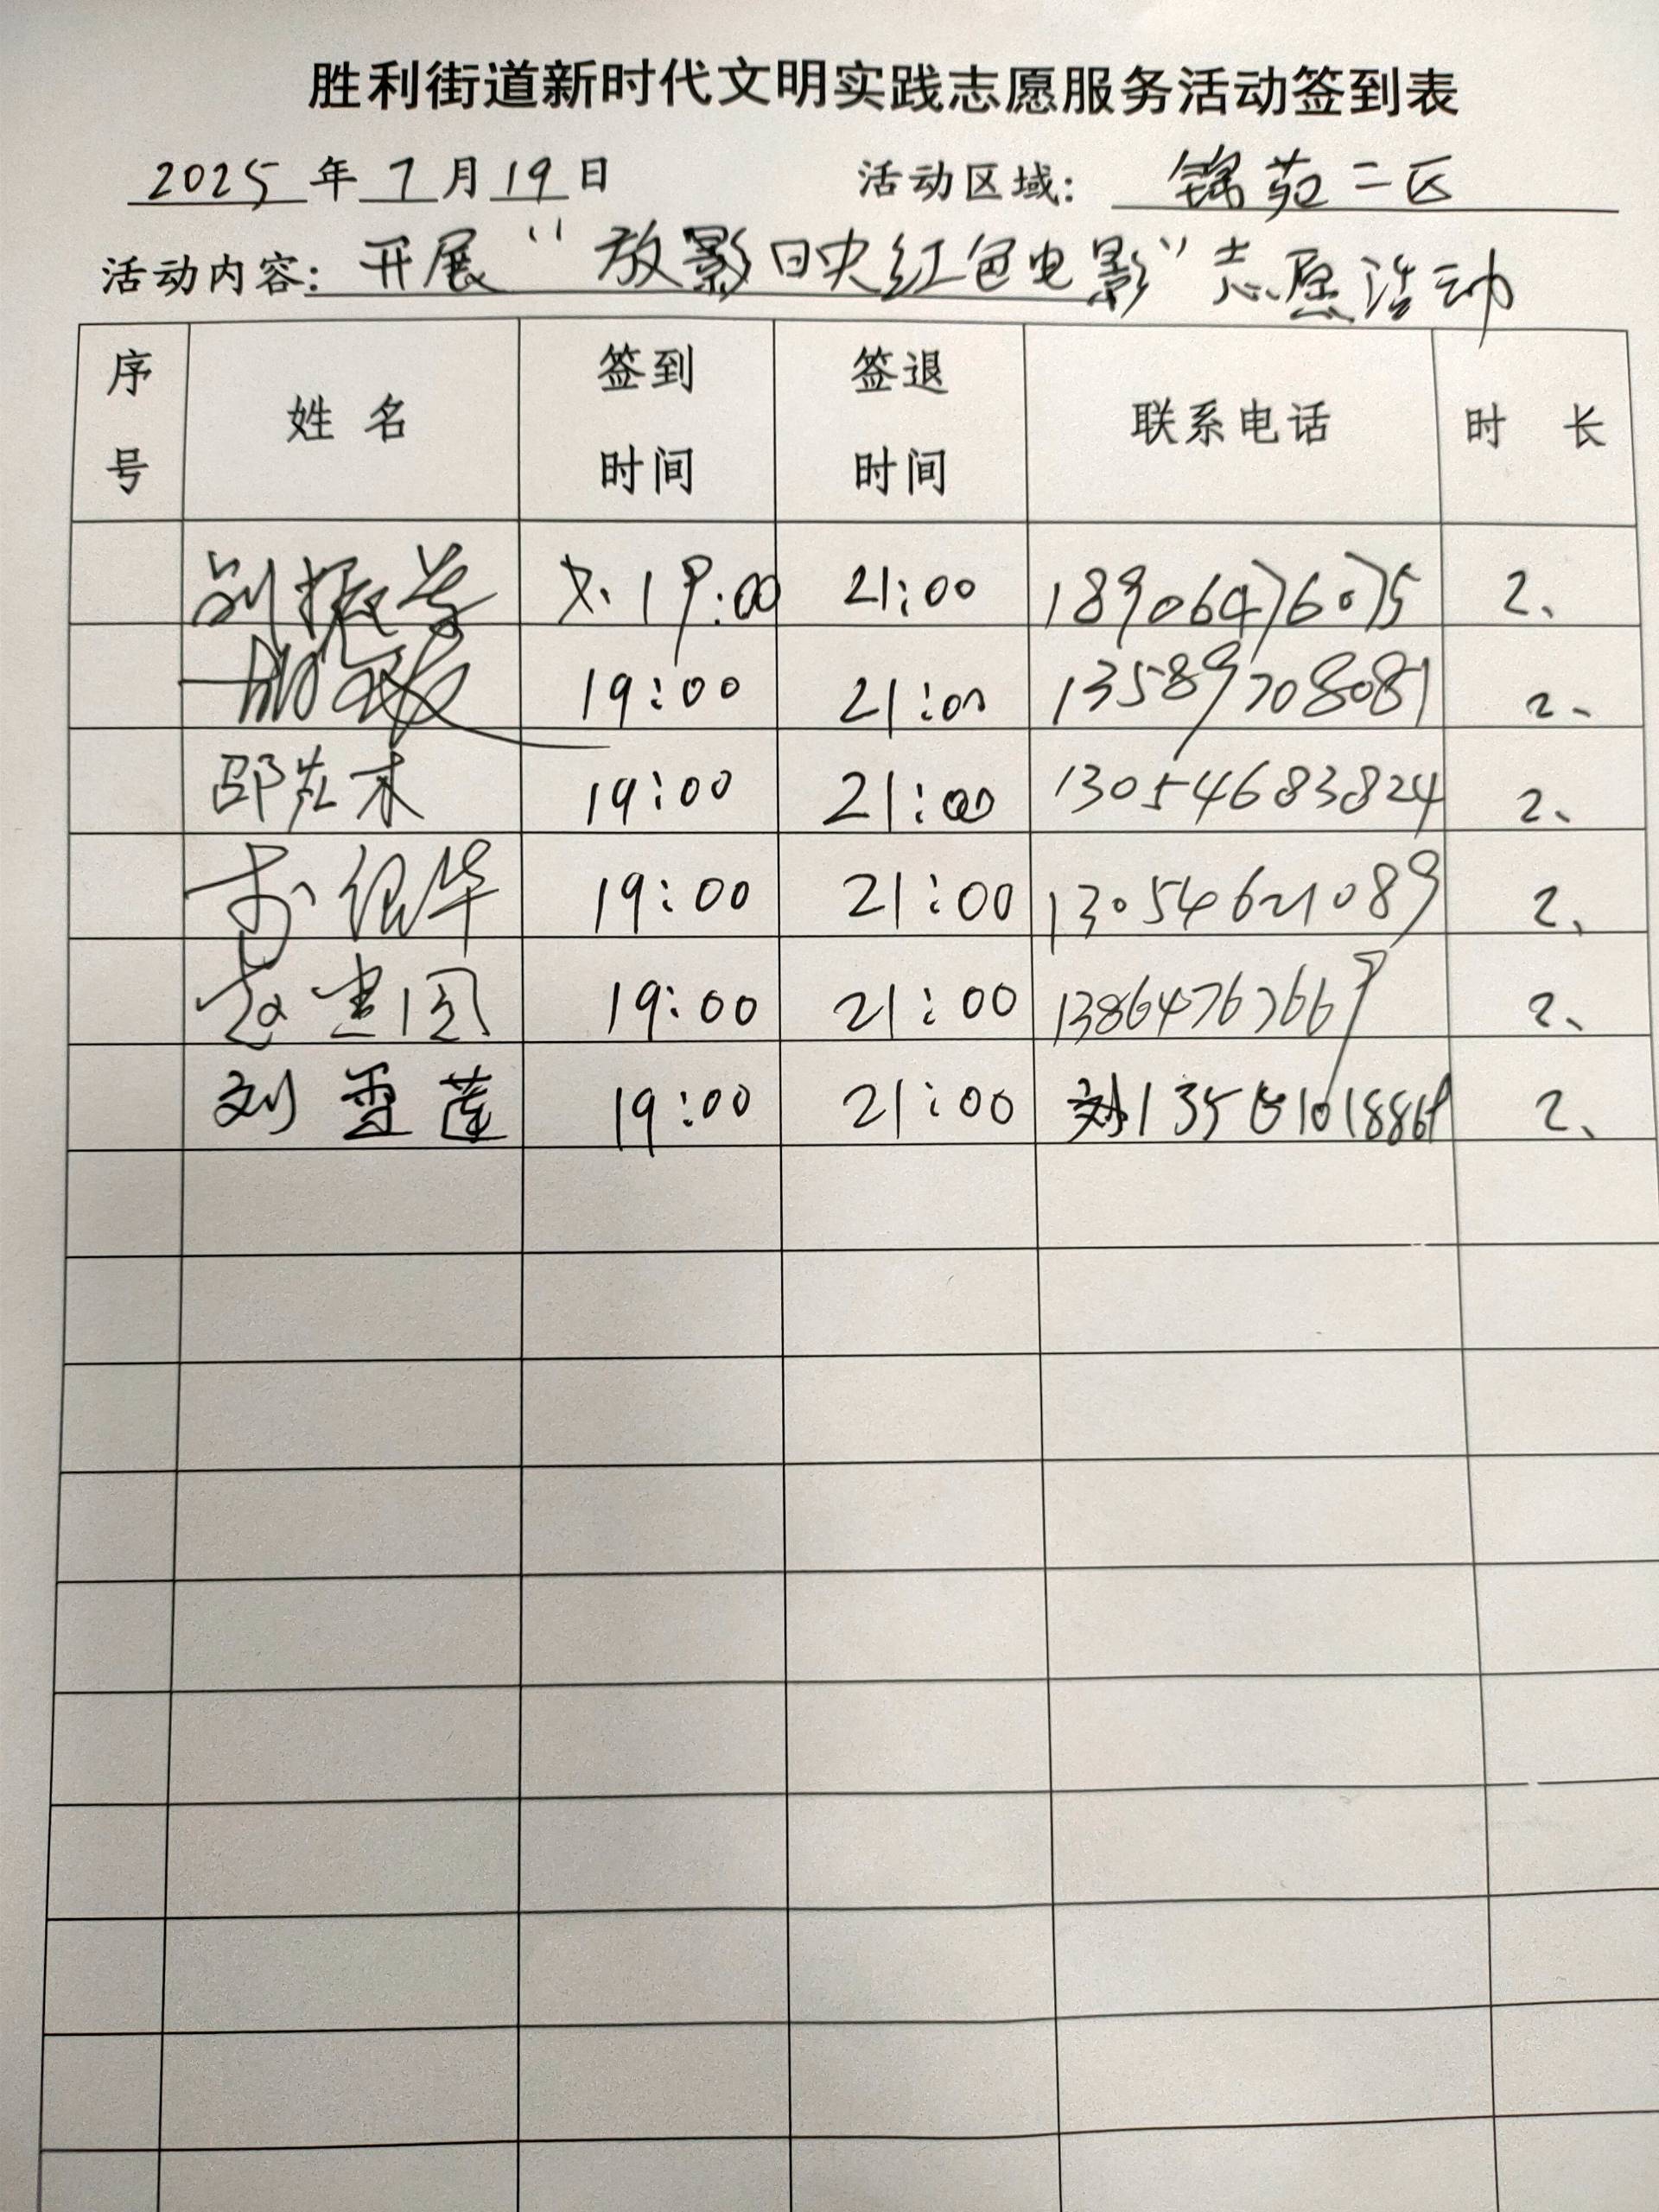 胜利街道新时代文明实践志愿服务活动签到表
2025年7月19日 活动区域：锦苑二区
活动内容：开展“放影日央红色电影”志愿活动
序号 姓名 签到时间 签退时间 联系电话 时长
刘振 19:00 21:00 18906476075 2、
19:00 21:00 13589708081 2、
邵 19:00 21:00 13054683824 2、
华 19:00 21:00 13054621089 2、
赵建国 19:00 21:00 13864767667 2、
刘雪莲 19:00 21:00 2、